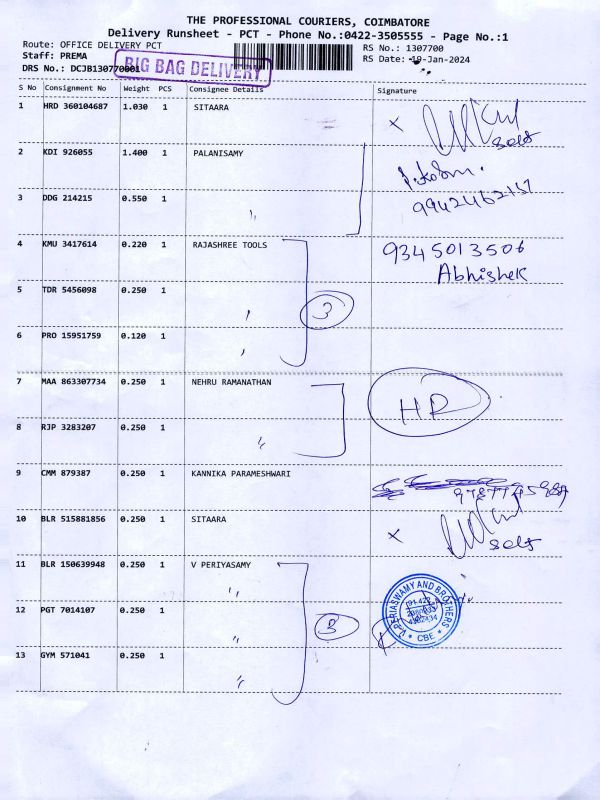 THE PROFESSIONAL COURIERS, COIMBATORE
Delivery Runsheet - PCT - Phone No.:0422-3505555 - Page No.:1
Route: OFFICE DELIVERY PCT
RS No.: 1307700
Staff: PREMA
RS Date: 19-Jan-2024
DRS No.: DCJB130770001
BIG BAG DELIVERY
S No Consignment No Weight PCS Consignee Details Signature
1 HRD 360104687 1.030 1 SITAARA X
self
2 KDI 926055 1.400 1 PALANISAMY
3 DDG 214215 0.550 1 "
9942462157
4 KMU 3417614 0.220 1 RAJASHREE TOOLS 9345013506
Abhishek
5 TDR 5456098 0.250 1 " 3
6 PRO 15951759 0.120 1 "
7 MAA 863307734 0.250 1 NEHRU RAMANATHAN
HR
8 RJP 3283207 0.250 1 "
9 CMM 879387 0.250 1 KANNIKA PARAMESHWARI
10 BLR 515881856 0.250 1 SITAARA X
self
11 BLR 150639948 0.250 1 V PERIYASAMY
"
V. PERIASWAMY AND BROTHERS
* CBE *
12 PGT 7014107 0.250 1 " 3
13 GYM 571041 0.250 1 "